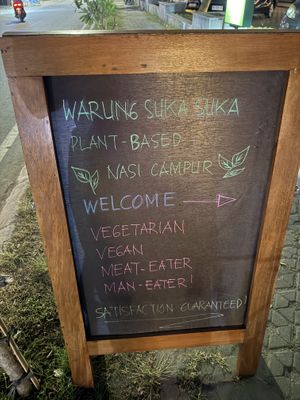 WARUNG SUKA SUKA
PLANT-BASED
NASI CAMPUR
WELCOME
VEGETARIAN
VEGAN
MEAT-EATER
MAN-EATER!
SATISFACTION GUARANTEED!